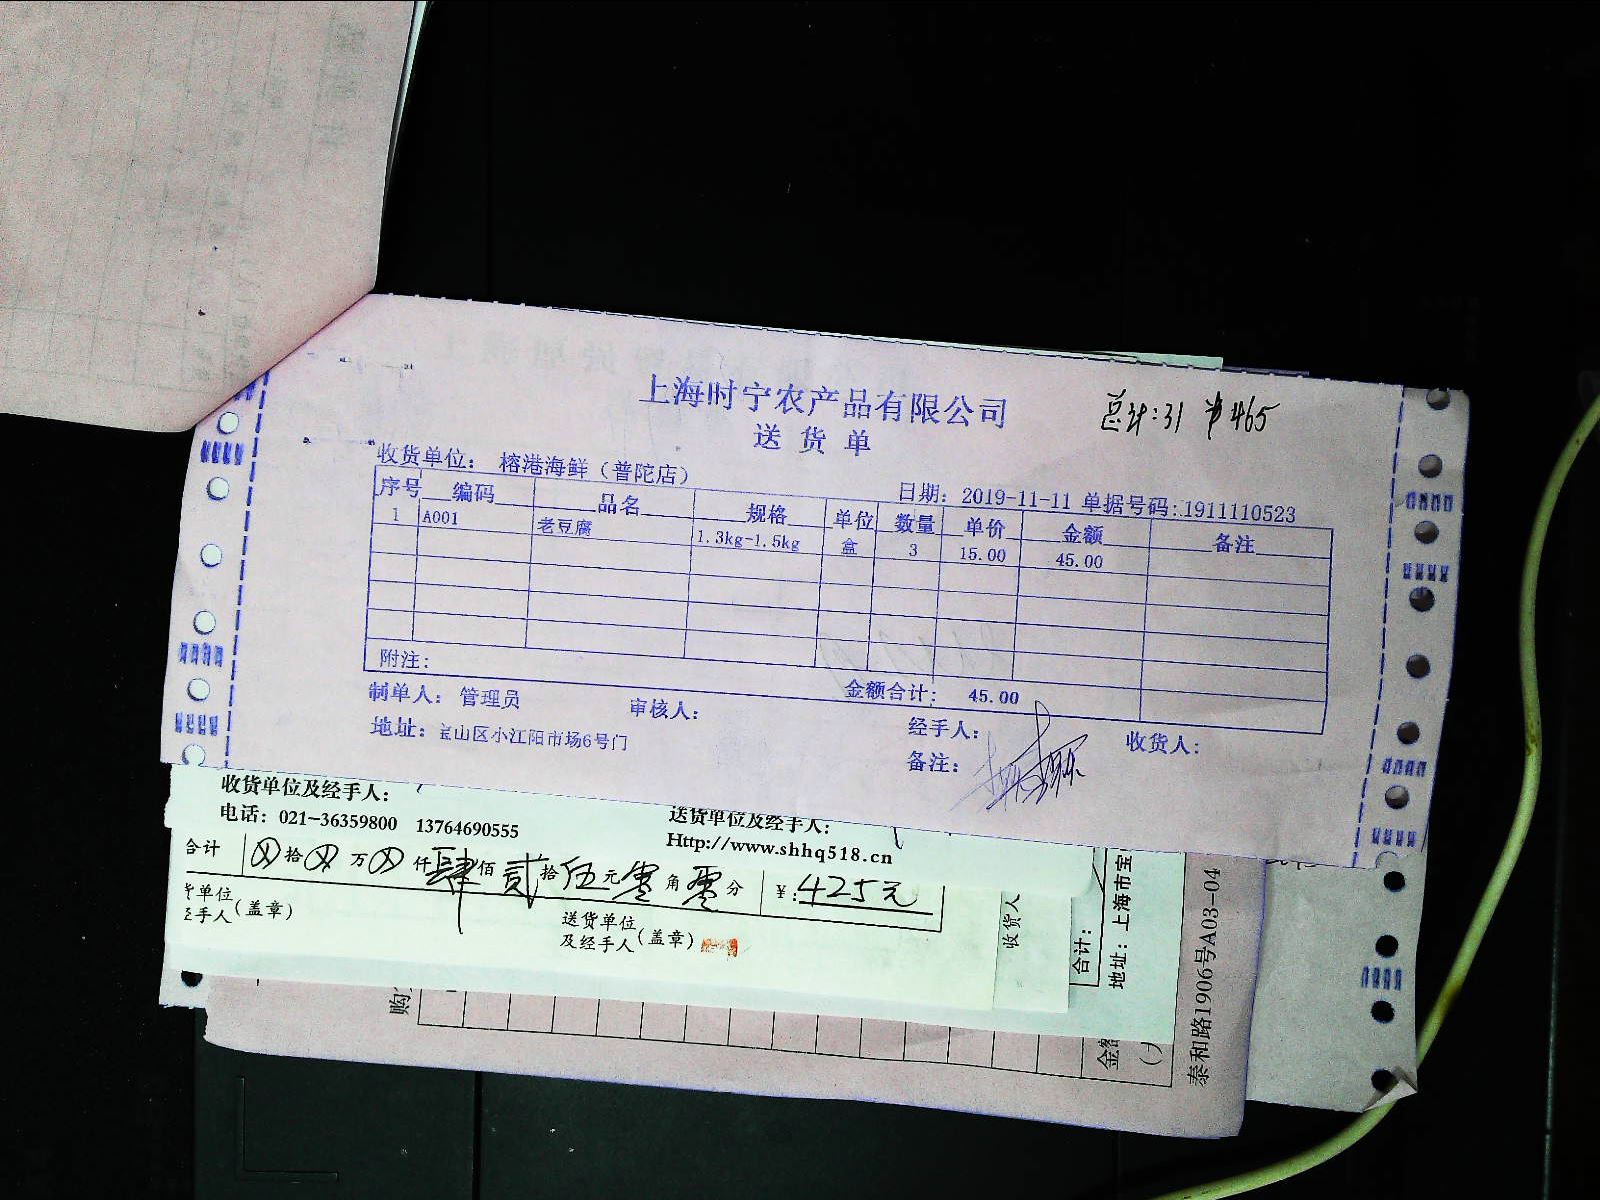 上海时宁农产品有限公司
总计:31 ¥465
送货单
收货单位: 榕港海鲜（普陀店）
日期: 2019-11-11 单据号码:1911110523
序号 编码 品名 规格 单位 数量 单价 金额 备注
1 A001 老豆腐 1.3kg-1.5kg 盒 3 15.00 45.00
附注:
金额合计: 45.00
制单人: 管理员 审核人: 经手人: 收货人:
地址: 宝山区小江阳市场6号门
备注:
收货单位及经手人: 送货单位及经手人:
电话: 021-36359800 13764690555 Http://www.shhq518.cn
合计 拾 万 仟肆佰贰拾伍元零角零分 ¥:425元
单位
手人(盖章)
送货单位
及经手人(盖章)
收货人
合计:
地址: 上海市宝
泰和路1906号A03-04
购
金